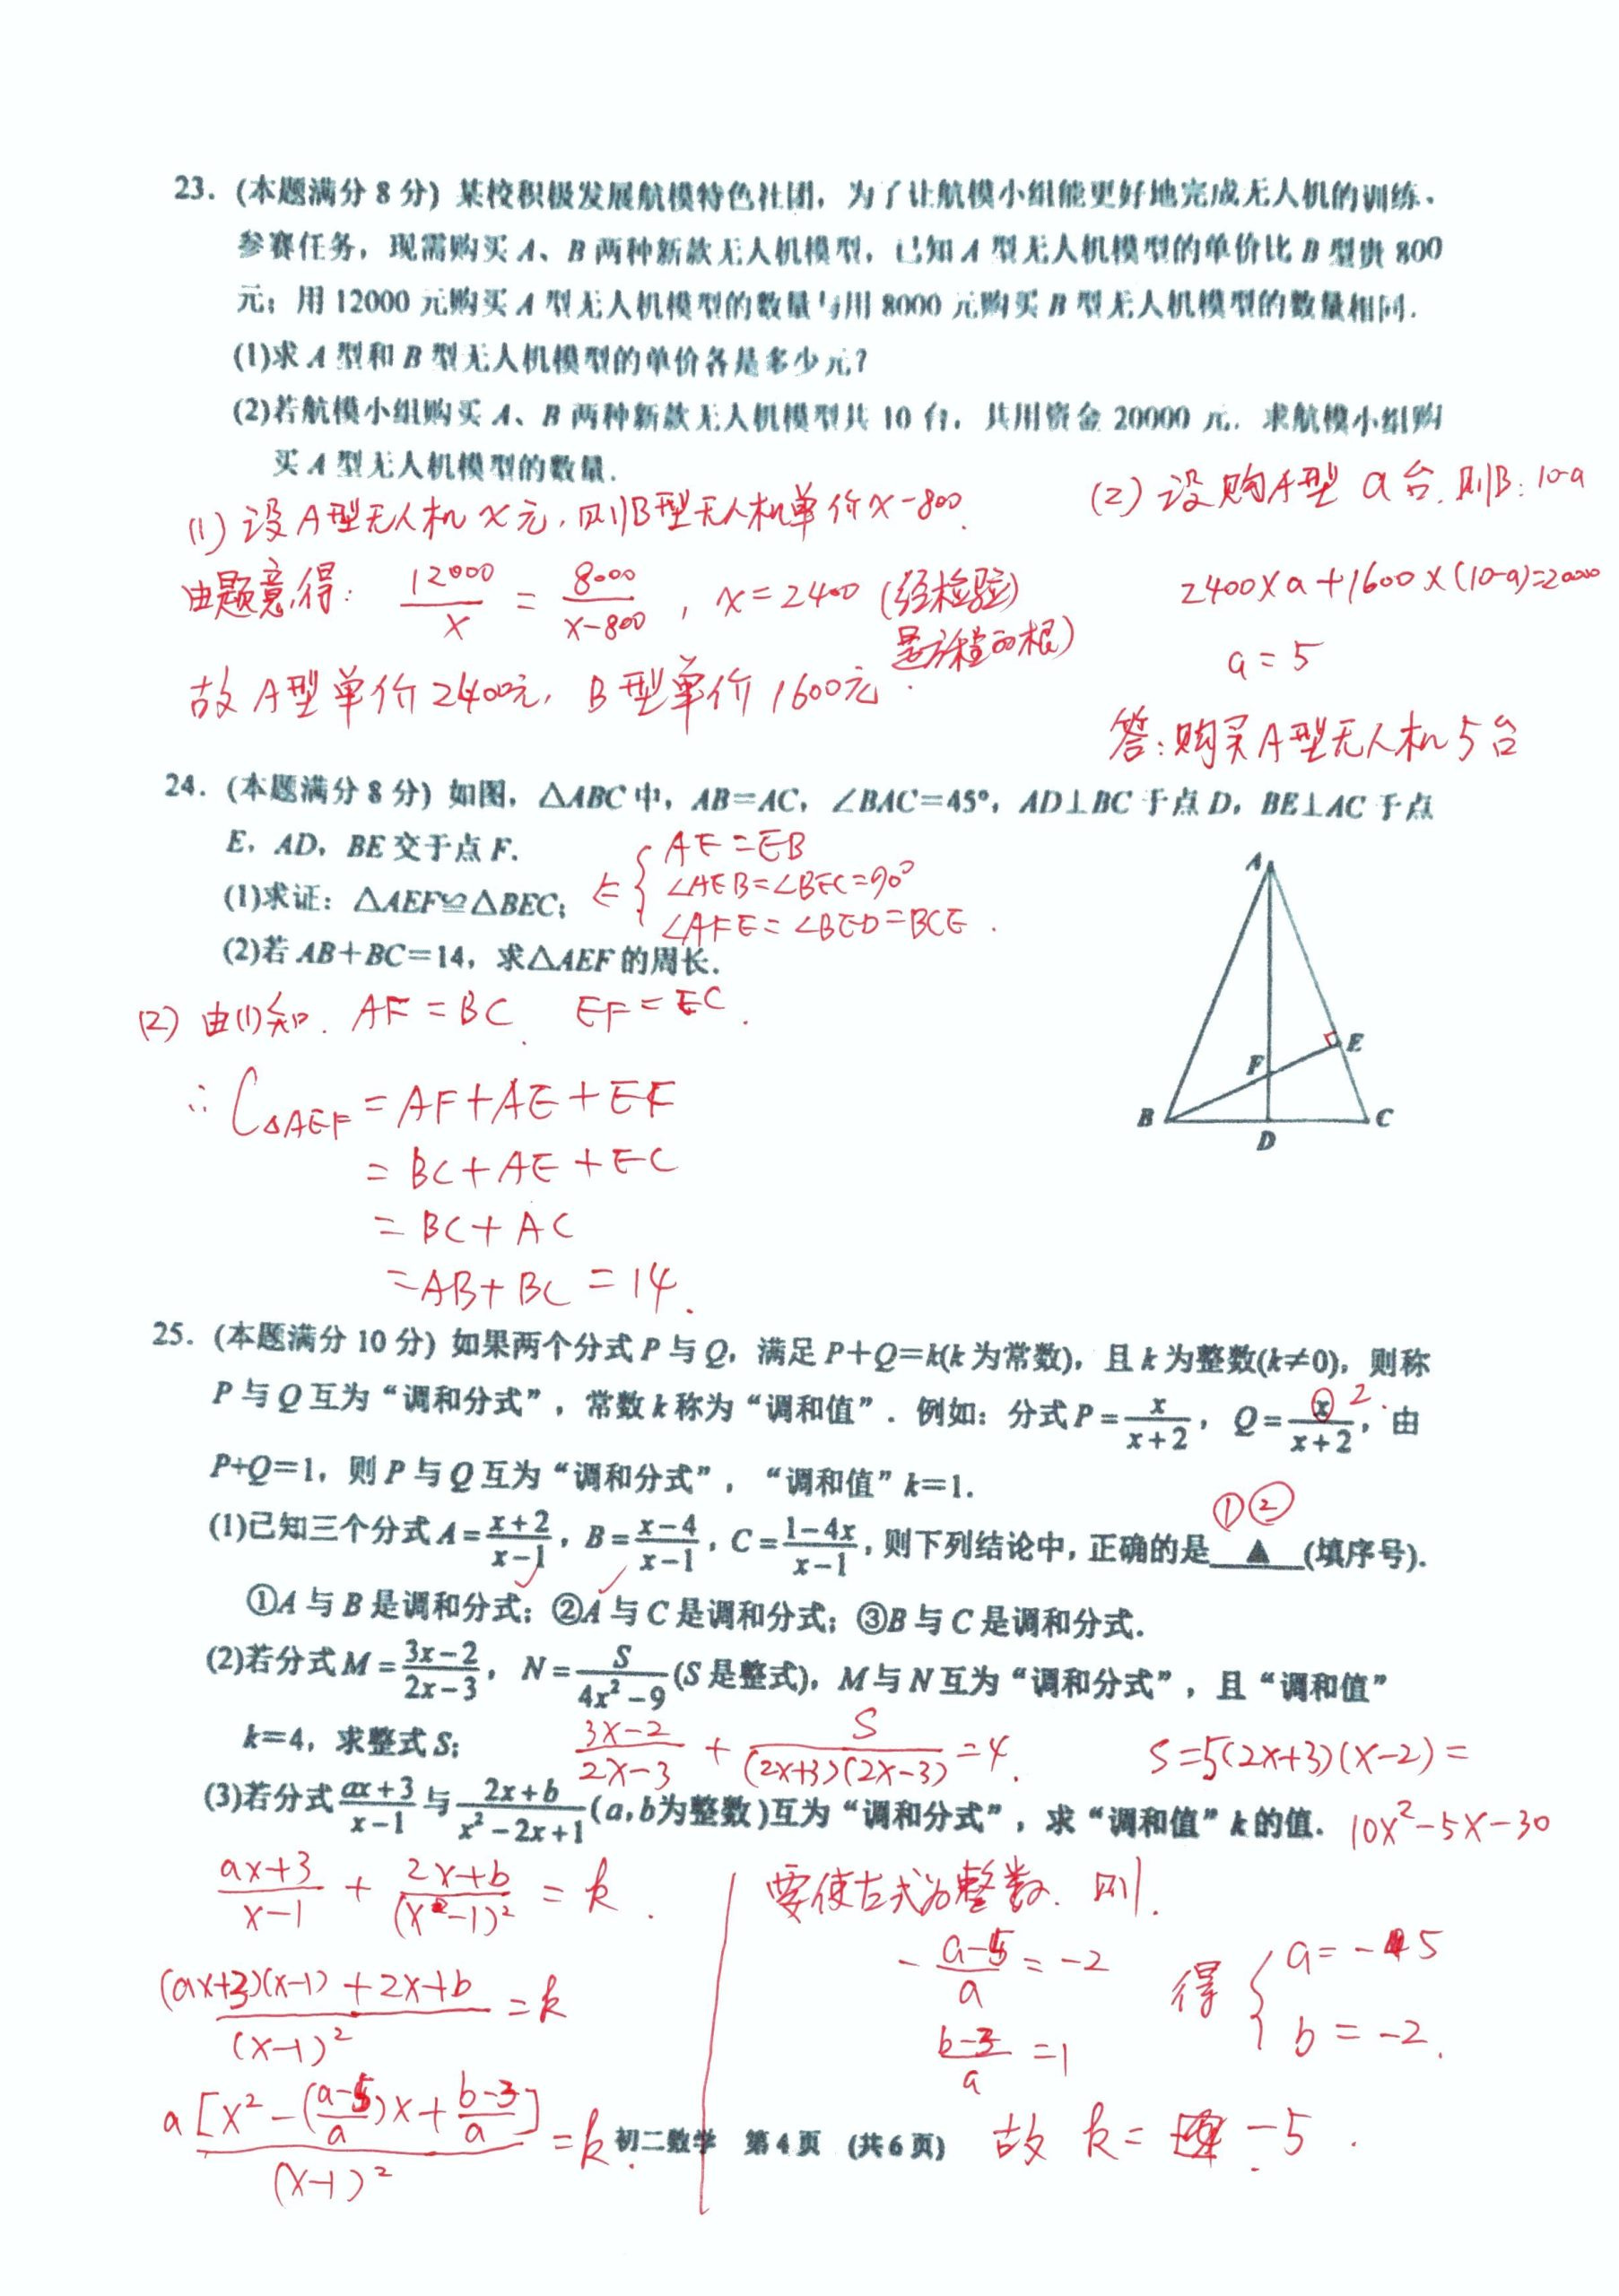 23. (本题满分 8 分) 某校积极发展航模特色社团，为了让航模小组能更好地完成无人机的训练、
参赛任务，现需购买 A、B 两种新款无人机模型，已知 A 型无人机模型的单价比 B 型贵 800
元；用 12000 元购买 A 型无人机模型的数量与用 8000 元购买 B 型无人机模型的数量相同.
(1)求 A 型和 B 型无人机模型的单价各是多少元？
(2)若航模小组购买 A、B 两种新款无人机模型共 10 台，共用资金 20000 元. 求航模小组购
买 A 型无人机模型的数量.
(1) 设A型无人机 x 元, 则B型无人机单价 x-800.
由题意得: 12000/x = 8000/(x-800), x=2400 (经检验
是方程的根)
故 A型单价2400元, B型单价1600元.
(2) 设购A型 a台. 则B: 10-a
2400×a+1600×(10-a)=20000
a=5
答:购买A型无人机5台
24. (本题满分 8 分) 如图，△ABC 中，AB=AC，∠BAC=45°，AD⊥BC 于点 D，BE⊥AC 于点
E，AD，BE 交于点 F.
(1)求证：△AEF≌△BEC；
AE=EB
∠AEB=∠BEC=90°
∠AFE=∠BFD=BCE.
(2)若 AB+BC=14，求△AEF 的周长.
A
E
F
B
D
C
(2) 由(1)知. AF=BC. EF=EC.
∴ C△AEF = AF+AE+EF
= BC+AE+EC
= BC+AC
=AB+BC=14.
25. (本题满分 10 分) 如果两个分式 P 与 Q，满足 P+Q=k(k 为常数)，且 k 为整数(k≠0)，则称
P 与 Q 互为“调和分式”，常数 k 称为“调和值”. 例如：分式 P=x/(x+2)，Q=x/(x+2)，由
2.
P+Q=1，则 P 与 Q 互为“调和分式”，“调和值” k=1.
①②
(1)已知三个分式 A=(x+2)/(x-1)，B=(x-4)/(x-1)，C=(1-4x)/(x-1)，则下列结论中，正确的是 ▲ (填序号).
①A 与 B 是调和分式；②A 与 C 是调和分式；③B 与 C 是调和分式.
(2)若分式 M=(3x-2)/(2x-3)，N=S/(4x²-9)(S 是整式)，M 与 N 互为“调和分式”，且“调和值”
k=4，求整式 S；
(3x-2)/(2x-3) + S/((2x+3)(2x-3)) =4.
S=5(2x+3)(x-2)=
10x²-5x-30
(3)若分式 (ax+3)/(x-1) 与 (2x+b)/(x²-2x+1) (a,b为整数)互为“调和分式”，求“调和值”k 的值.
(ax+3)/(x-1) + (2x+b)/(x-1)² = k.
((ax+3)(x-1)+2x+b)/(x-1)² =k
a[x²-((a-5)/a)x+(b-3)/a]/(x-1)² =k.
要使左式为整数. 则.
-(a-5)/a=-2
(b-3)/a=1
得 a=-5
b=-2.
故 k= -5.
初二数学 第 4 页 (共 6 页)